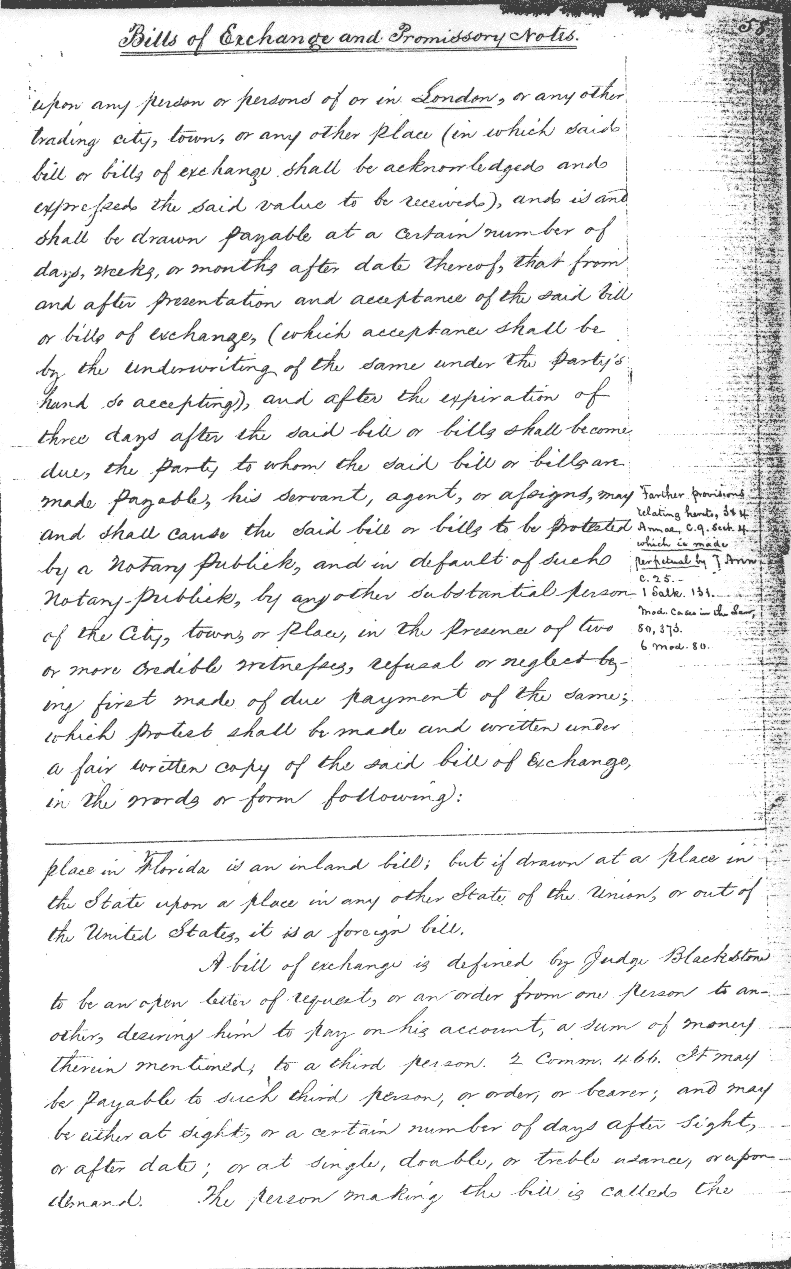 Bills of Exchange and Promissory Notes.
58
upon any person or persons of or in London, or any other
trading city, town, or any other place (in which said
bill or bills of exchange shall be acknowledged and
expressed the said value to be received), and is and
shall be drawn payable at a certain number of
days, weeks, or months after date thereof, that from
and after presentation and acceptance of the said bill
or bills of exchange, (which acceptance shall be
by the underwriting of the same under the party's
hand so accepting), and after the expiration of
three days after the said bill or bills shall become
due, the party to whom the said bill or bills are
made payable, his servant, agent, or assigns, may
and shall cause the said bill or bills to be protested
by a Notary Publick, and in default of such
Notary-publick, by any other substantial person
of the City, town, or place, in the presence of two
or more credible witnesses, refusal or neglect be-
ing first made of due payment of the same;
which protest shall be made and written under
a fair written copy of the said bill of exchange,
in the words or form following:
Farther provisions
relating hereto, 3 & 4
Annae, C.9. Sect. 4
which is made
perpetual by 7 Ann
c. 25.-
1 Salk. 131.
Mod. Cases in the Law,
80, 373.
6 Mod. 80.
place in Florida is an inland bill; but if drawn at a place in
the State upon a place in any other State of the Union, or out of
the United States, it is a foreign bill.
A bill of exchange is defined by Judge Blackstone
to be an open letter of request, or an order from one person to an-
other, desiring him to pay on his account, a sum of money
therein mentioned, to a third person. 2 Comm. 466. It may
be payable to such third person, or order, or bearer; and may
be either at sight, or a certain number of days after sight,
or after date; or at single, double, or treble usance, or upon
demand. The person making the bill is called the